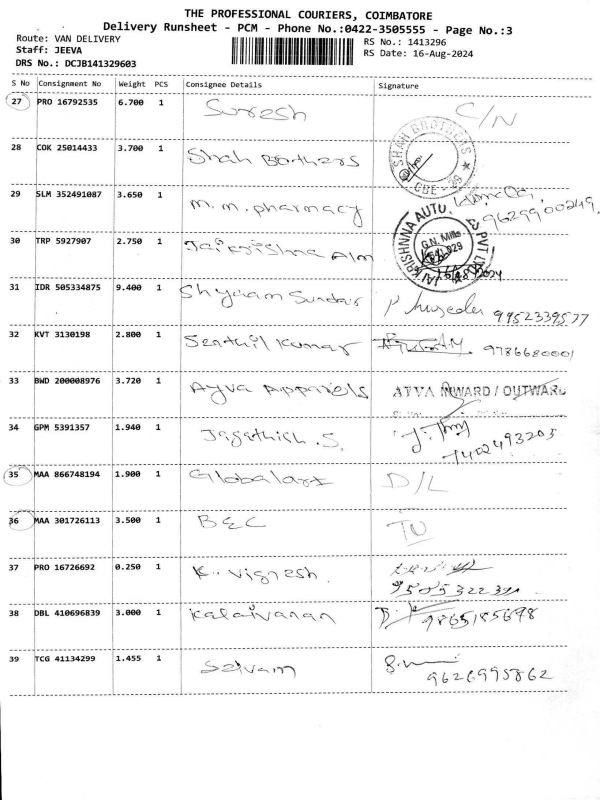 THE PROFESSIONAL COURIERS, COIMBATORE
Delivery Runsheet - PCM - Phone No.:0422-3505555 - Page No.:3
Route: VAN DELIVERY RS No.: 1413296
Staff: JEEVA RS Date: 16-Aug-2024
DRS No.: DCJB141329603
S No Consignment No Weight PCS Consignee Details Signature
27 PRO 16792535 6.700 1 Suresh C/N
28 COK 25014433 3.700 1 Shah Borthers SHAH BROTHERS CBE - 29
29 SLM 352491087 3.650 1 m.m. pharmacy
9629900249
30 TRP 5927907 2.750 1 Jaikrishna Alm JAI KRISHNNA AUTO PVT LTD G.N. Mills
31 IDR 505334875 9.400 1 Shyaam Sundar 9952339577
32 KVT 3130198 2.800 1 Senthil Kumar 9786680001
33 BWD 200008976 3.720 1 Ayva Apparels AYVA INWARD / OUTWARD
34 GPM 5391357 1.940 1 Jagathish .S.
7402493205
35 MAA 866748194 1.900 1 Globalart D/L
36 MAA 301726113 3.500 1 B&C
37 PRO 16726692 0.250 1 K. Vignesh.
38 DBL 410696839 3.000 1 Kalaivanan 9865185698
39 TCG 41134299 1.455 1 Selvam
9626995862